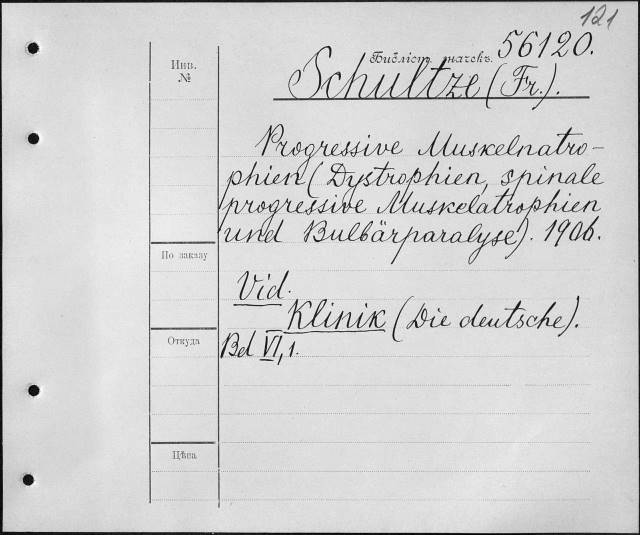 121
Библіот. значекъ. 56120.
Инв.
№
Schultze (Fr.).
Progressive Muskelnatro-
phien (Dystrophien, spinale
progressive Muskelatrophien
und Bulbärparalyse). 1906.
По заказу
Vid.
Klinik (Die deutsche).
Откуда
Bd VI, 1.
Цѣна